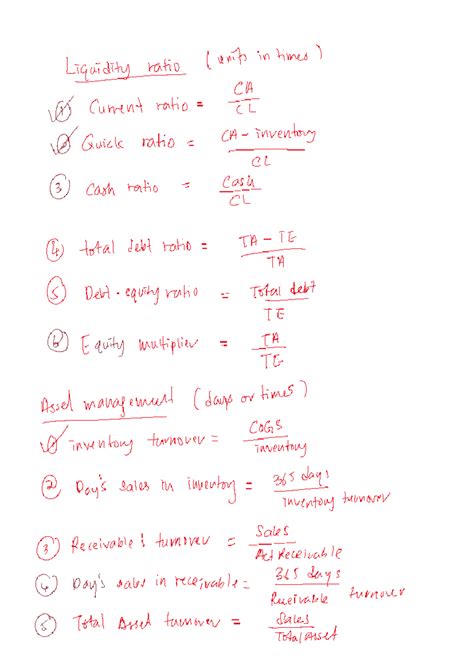 Liquidity ratio (units in times)
① Current ratio = CA / CL
② Quick ratio = CA - inventory / CL
③ Cash ratio = Cash / CL
④ total debt ratio = TA - TE / TA
⑤ Debt-equity ratio = Total debt / TE
⑥ Equity multiplier = TA / TE
Asset management (days or times)
① inventory turnover = COGS / inventory
② Day's sales in inventory = 365 days / inventory turnover
③ Receivable's turnover = Sales / Act Receivable
④ Day's sales in receivable = 365 days / Receivable turnover
⑤ Total Asset turnover = Sales / Total Asset